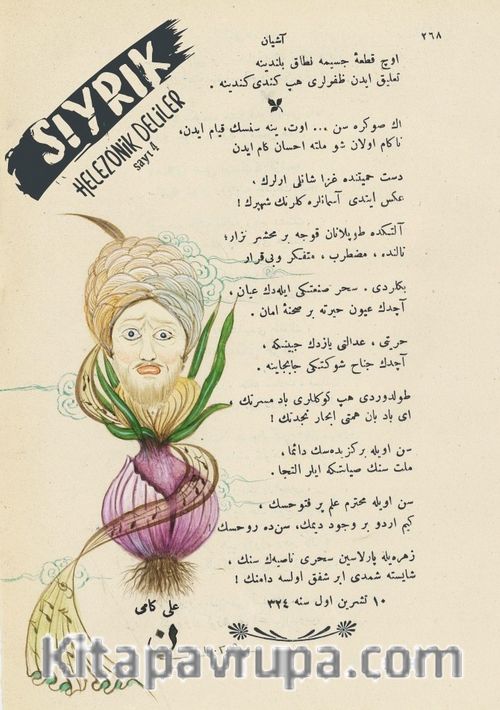 ٢٦٨
آشیان
SIYRIK
HELEZÓNİK DELİLER
sayı 4
اوچ قطعۀ جسیمه نطاق بلندینه
تعلیق ایدن ظفرلری هپ کندی کندینه .
اك صوکره سن ... اوت، ینه سنسك قیام ایدن،
ناکام اولان شو ملته احسان کام ایدن
دست حمیتنده غزا شانلی اولرك ،
عکس ایتدی آسمانلره کلرنك شهپرك !
آلتکده طوپلانان قوجه بر محشر نزار؛
نالنده ، مضطرب ، متفکر وبی قرار
بکلردی . سحر صنعتکی ایله‌دك عیان ،
آچدك عیون حیرته بر صحنۀ امان .
حریتی ، عدالتی یازدك جبینکه ،
آچدك جناح شوکتکی جابجاینه .
طولدوردی هپ کوکللری باد مسرتك ،
ای باد بان همتی ابحار نجدتك !
سن اویله برگزیده‌سك دائما ،
ملت سنك صیانتکه ایلر التجا .
سن اویله محترم علم پر فتوحسك ،
کیم اردو بر وجود دیمك، سن‌ده روحسك
زهره‌یله پارلاسین سحری ناصیه‌ك سنك ،
شایسته شمدی ابر شفق اولسه دامنك !
١٠ تشرین اول سنه ٣٢٤
علی کامی
kitapavrupa.com